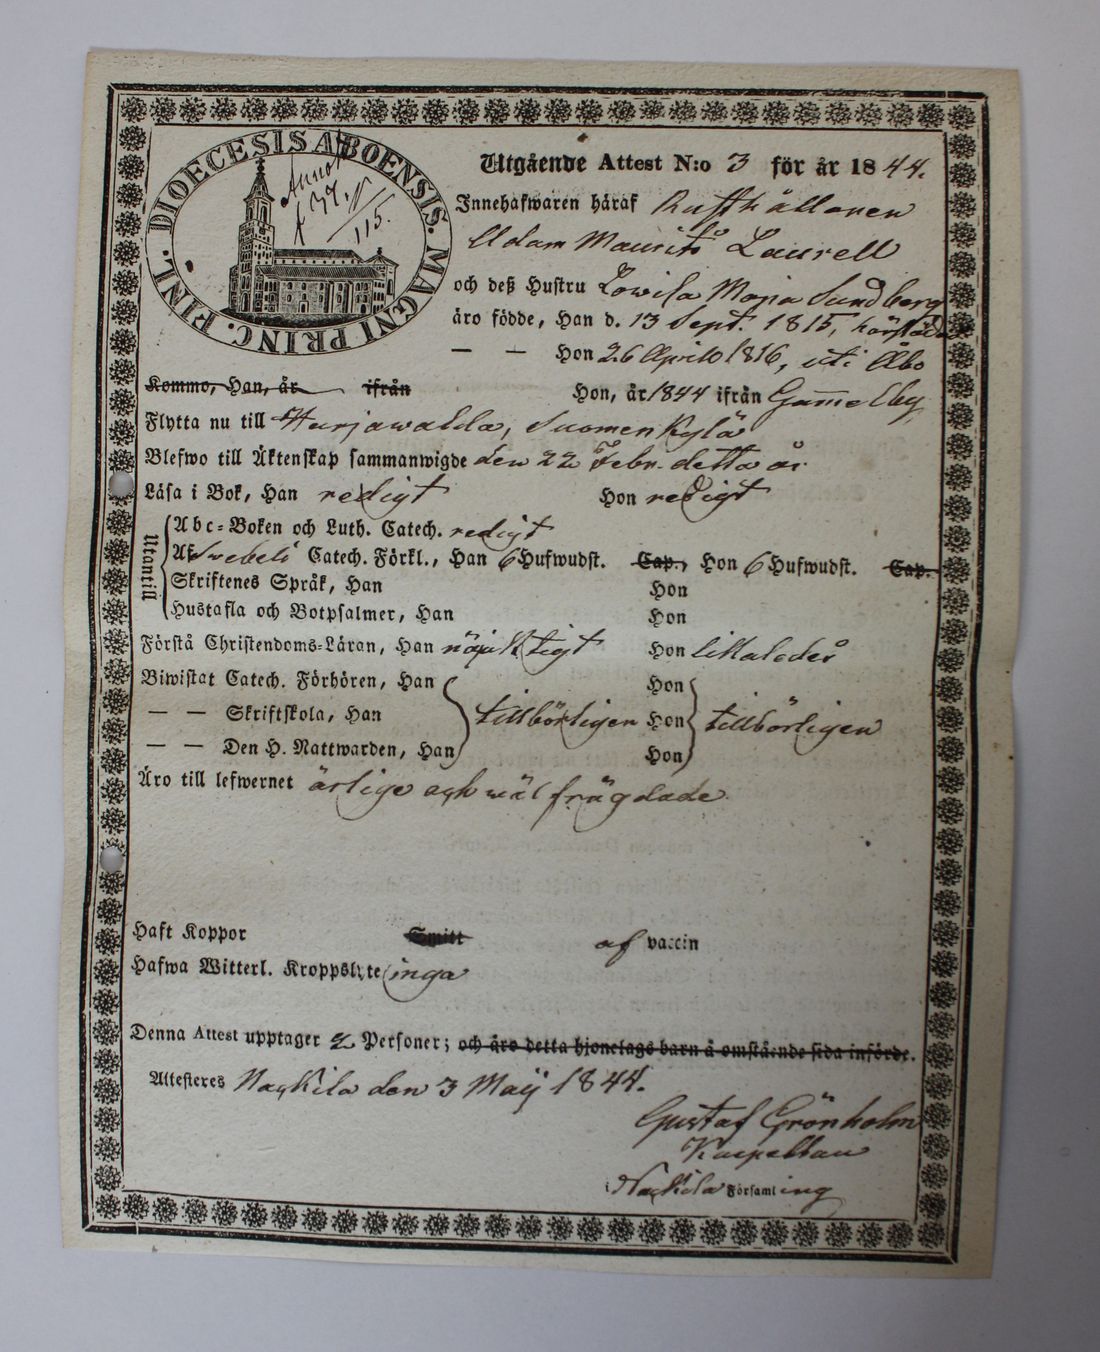 DIOECESIS ABOENSIS. MAGNI PRINC. FINL.
Annot
37.
115.
Utgående Attest N:o 3 för år 1844.
Innehafwaren häraf Rusthållaren
Adam Maurits Laurell
och deß Hustru Lowisa Maja Sundberg
äro födde, Han d. 13 Sept. 1815, härstädes
— — Hon 26 April 1816, uti Åbo
Kommo, Han, år ifrån Hon, år 1844 ifrån Gammelby,
Flytta nu till Harjawalda, Suomenkylä
Blefwo till Äktenskap sammanwigde den 22 Febr. detta år
Läsa i Bok, Han redigt Hon redigt
Utantill
Abc-Boken och Luth. Catech. redigt
Af Swebeli Catech. Förkl., Han 6 Hufwudst. Cap., Hon 6 Hufwudst. Cap.
Skriftenes Språk, Han Hon
Hustafla och Botpsalmer, Han Hon
Förstå Christendoms-Läran, Han nöjaktigt Hon likaledes
Biwistat Catech. Förhören, Han Hon
— — Skriftskola, Han tillbörligen Hon tillbörligen
— — Den H. Nattwarden, Han Hon
Äro till lefwernet ärlige och wäl frägdade
Haft Koppor Smitt af vaccin
Hafwa Witterl. Kroppslyte inga
Denna Attest upptager 2 Personer; och äro detta hjonelags barn å omstående sida införde.
Attesteres Nackila den 3 Maij 1844.
Gustaf Grönholm
Kapellan
i Nackila Församling